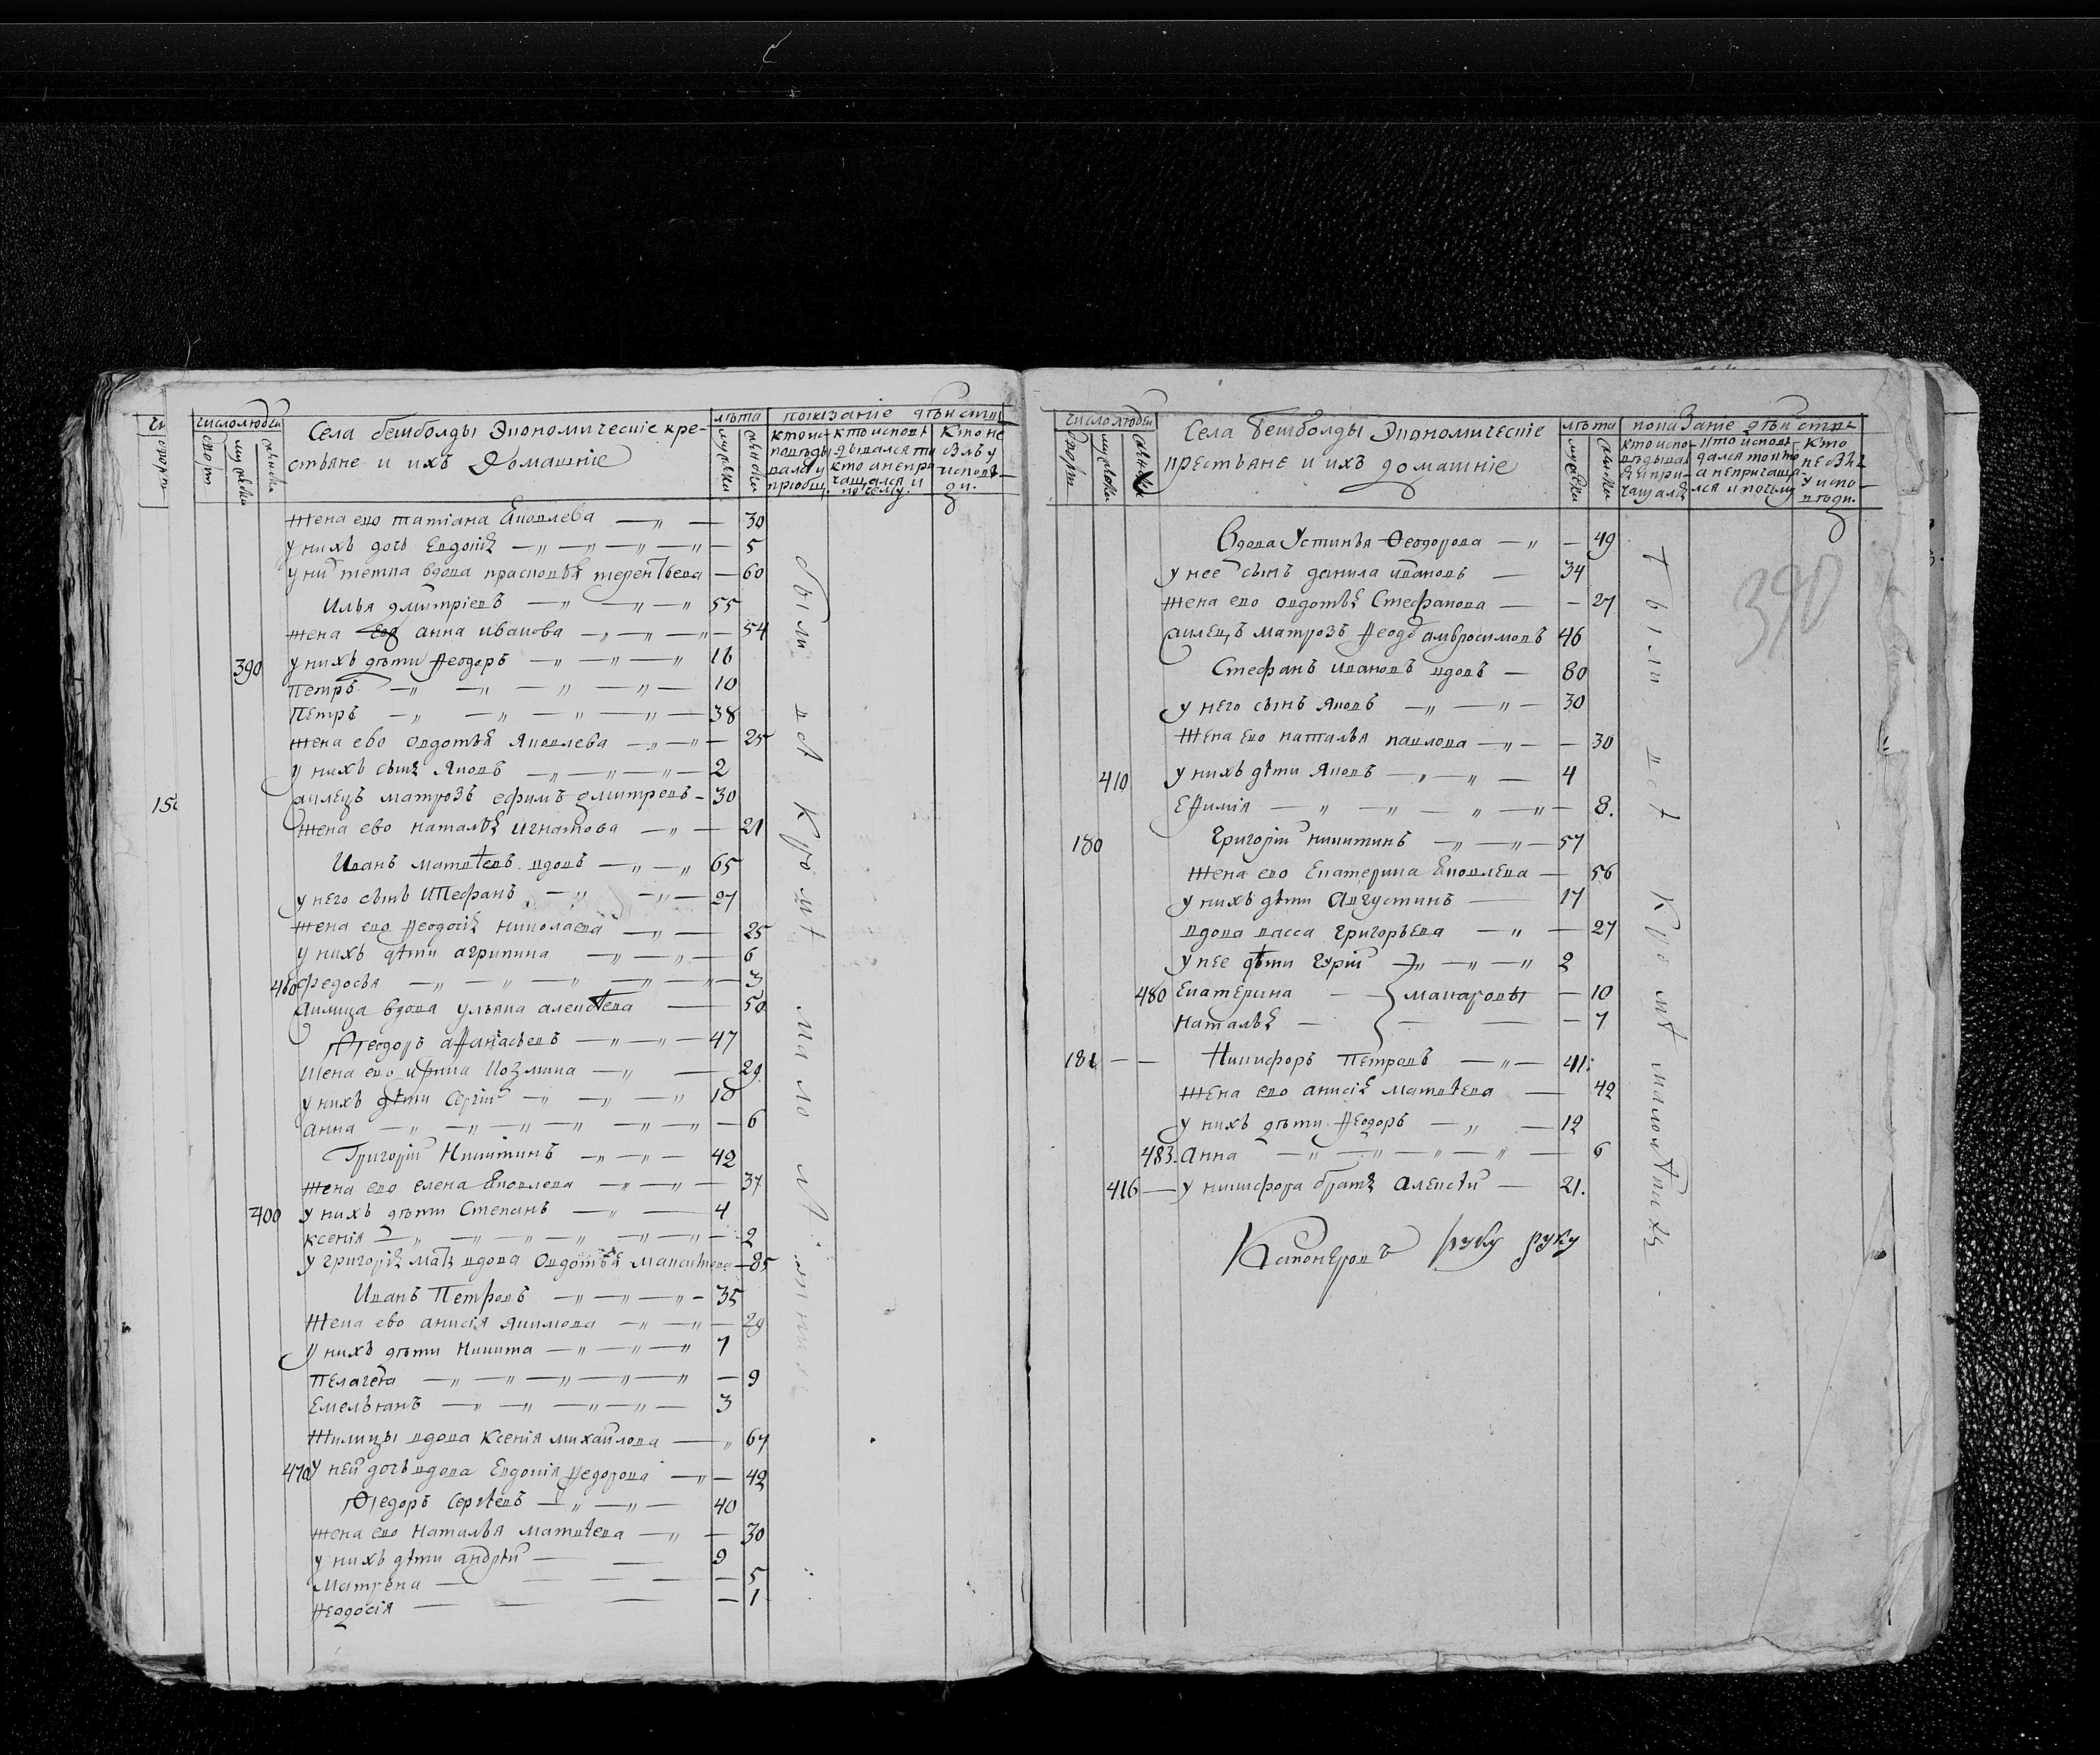 число людей
двор
мужска
женска
Села бешболды Экономическіе кре-
стьяне и ихъ Домашніе
лѣта
мужска
женска
показаніе дѣйства
кто исповѣдывался и приобщ.
кто исповѣдывался токмо а непричащался и почему.
Кто не былъ у исповѣди.
жена ево татіана Яковлева 30
у нихъ дочь Евдокія 5
у ни тетка вдова прасковья терентьева 60
Илья дмитріевъ 55
жена ево анна иванова 54
390 у нихъ дѣти Ѳеодоръ 16
Петръ 10
Петръ 38
жена ево Овдотья Яковлева 25
у нихъ сынъ Яковъ 2
жилецъ матрозъ ефимъ дмитревъ 30
жена ево наталья игнатова 21
Иванъ матвѣевъ вдовъ 65
у него сынъ Стефанъ 27
жена ево Ѳеодосія николаева 25
у нихъ дѣти агрипина 6
460 федосья 3
жилица вдова ульяна алексѣева 50
Ѳеодоръ аѲанасьевъ 47
жена ево ирина Козмина 29
у нихъ дѣти Сергій 10
анна 6
Григорій Никитинъ 42
жена ево елена Яковлева 37
400 у нихъ дѣти Степанъ 4
ксенія 2
у григорія мать вдова Овдотья 85
Иванъ Петровъ 35
жена ево анисія Якимова 29
у нихъ дѣти Никита 7
Пелагея 9
Емельянъ 3
Жилицы вдова Ксенія михайлова 67
470 у ней дочь вдова Евдокія Ѳедорова 42
Ѳедоръ Сергѣевъ 40
жена ево Наталья матвѣева 30
у нихъ дѣти андрѣй 9
Матрена 5
Ѳеодосія 1
были всѣ Кромѣ малолѣтнихъ
число людей
двор
мужска
женска
Села бешболды Экономическіе
крестьяне и ихъ домашніе
лѣта
мужска
женска
показаніе дѣйства
Кто исповѣдывался и причащался
кто исповѣдался токмо а непричащался и почему
Кто не былъ у исповѣди.
390
Вдова Устинья Ѳеодорова 49
у нее сынъ данила ивановъ 34
жена ево овдотья Стефанова 27
жилецъ матрозъ Ѳеодо амвросимовъ 46
Стефанъ ивановъ вдовъ 80
у него сынъ Яковъ 30
жена ево наталья павлова 30
410 у нихъ дѣти Яковъ 4
ЕѲимія 8.
180 Григорій никитинъ 57
жена ево Екатерина Яковлева 56
у нихъ дѣти Августинъ 17
вдова васса григорьева 27
у нее дѣти гурій 2
480 Екатерина } макаровы 10
Наталья 7
181 Никифоръ Петровъ 41.
жена ево анисія матвѣева 42
у нихъ дѣти Ѳеодоръ 12
483. Анна 6
416 у никифора братъ Алексѣй 21.
были всѣ Кромѣ малолѣтнихъ
руку